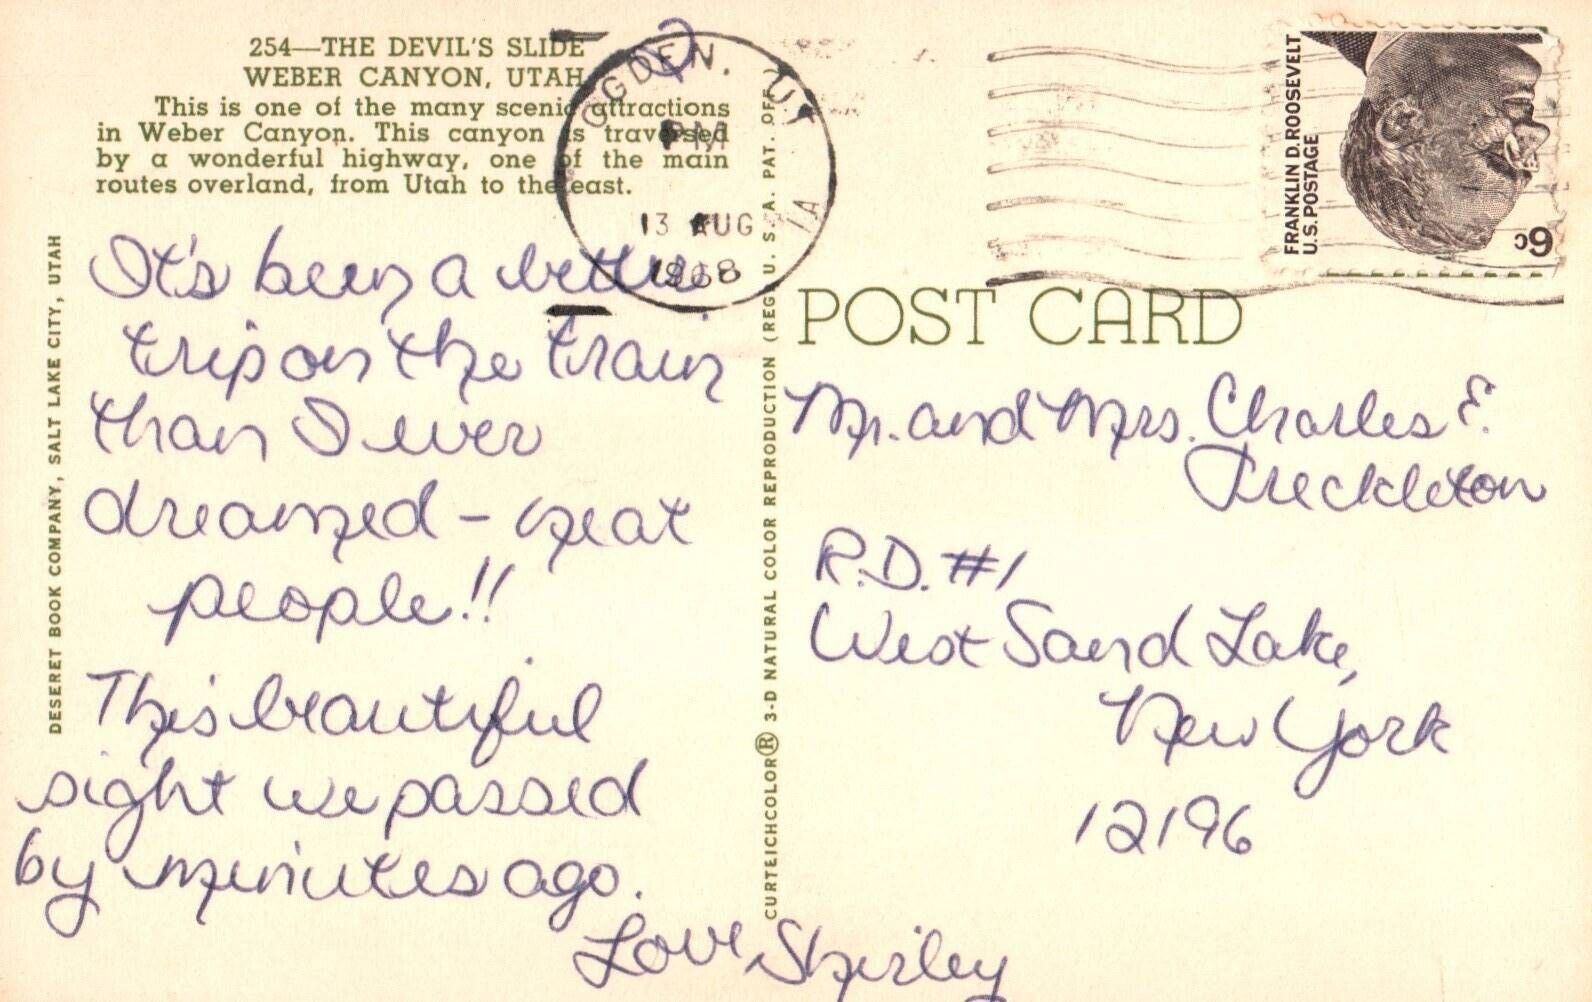 254—THE DEVIL'S SLIDE
WEBER CANYON, UTAH
This is one of the many scenic attractions
in Weber Canyon. This canyon is traversed
by a wonderful highway, one of the main
routes overland, from Utah to the east.
OGDEN, UT
PM
13 AUG
1968
1A
FRANKLIN D. ROOSEVELT
U.S. POSTAGE
6c
DESERET BOOK COMPANY, SALT LAKE CITY, UTAH
It's been a better
trip on the train
than I ever
dreamed – neat
people!!
This beautiful
sight we passed
by minutes ago.
Love, Shirley
CURTEICHCOLOR® 3-D NATURAL COLOR REPRODUCTION (REG. U. S. A. PAT. OFF.)
POST CARD
Mr. and Mrs. Charles E.
Freckleton
R.D. #1
West Sand Lake,
New York
12196